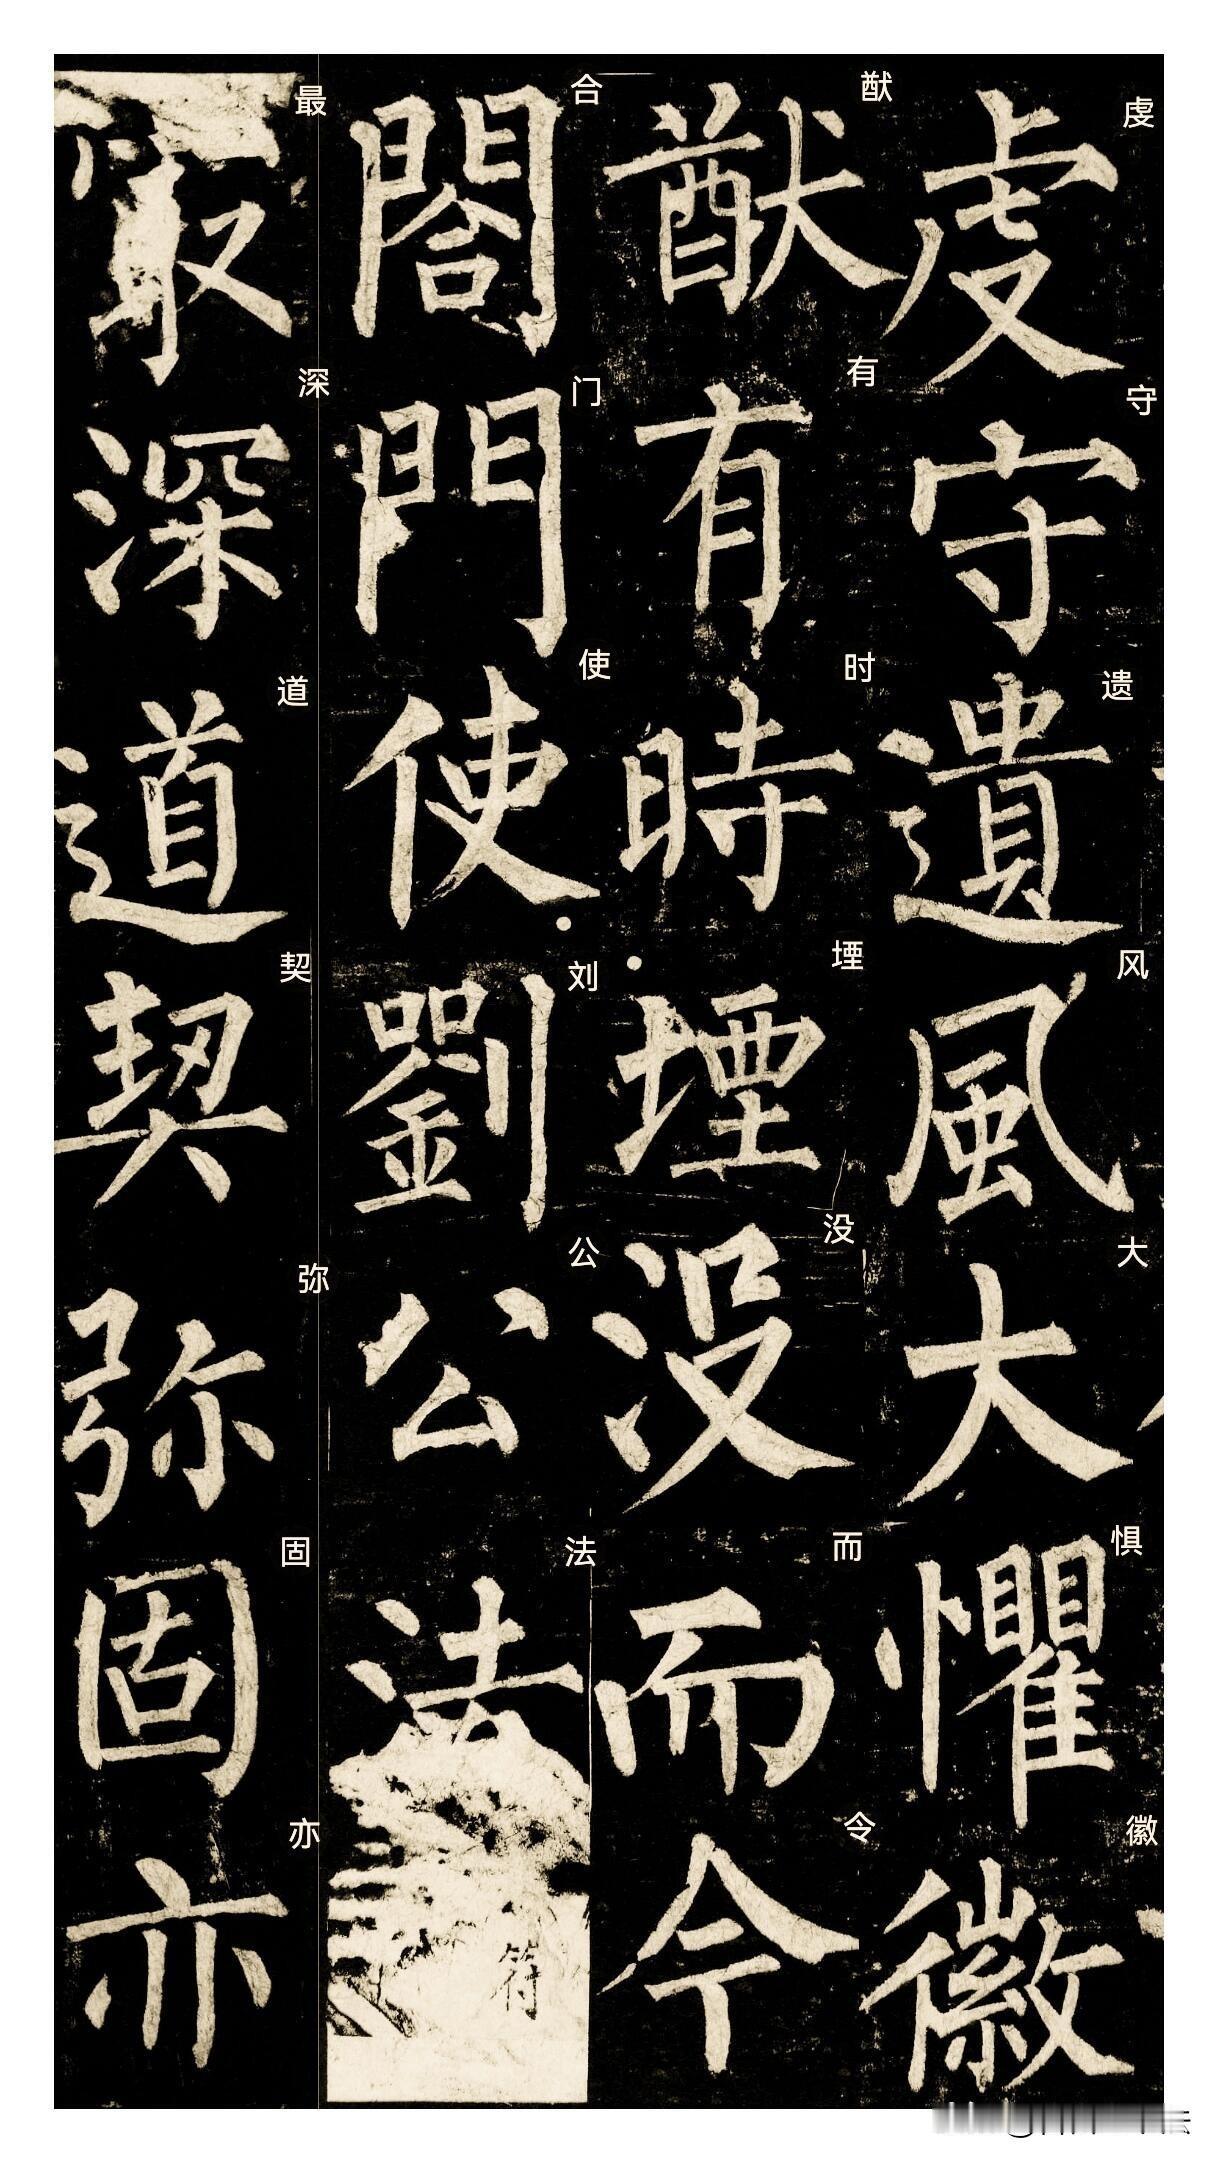 虔守遺風大懼徽
虔守遗风大惧徽
猷有時堙没而令
猷有时堙没而令
閤門使劉公法符
合门使刘公法
㝡深道契弥固亦
最深道契弥固亦